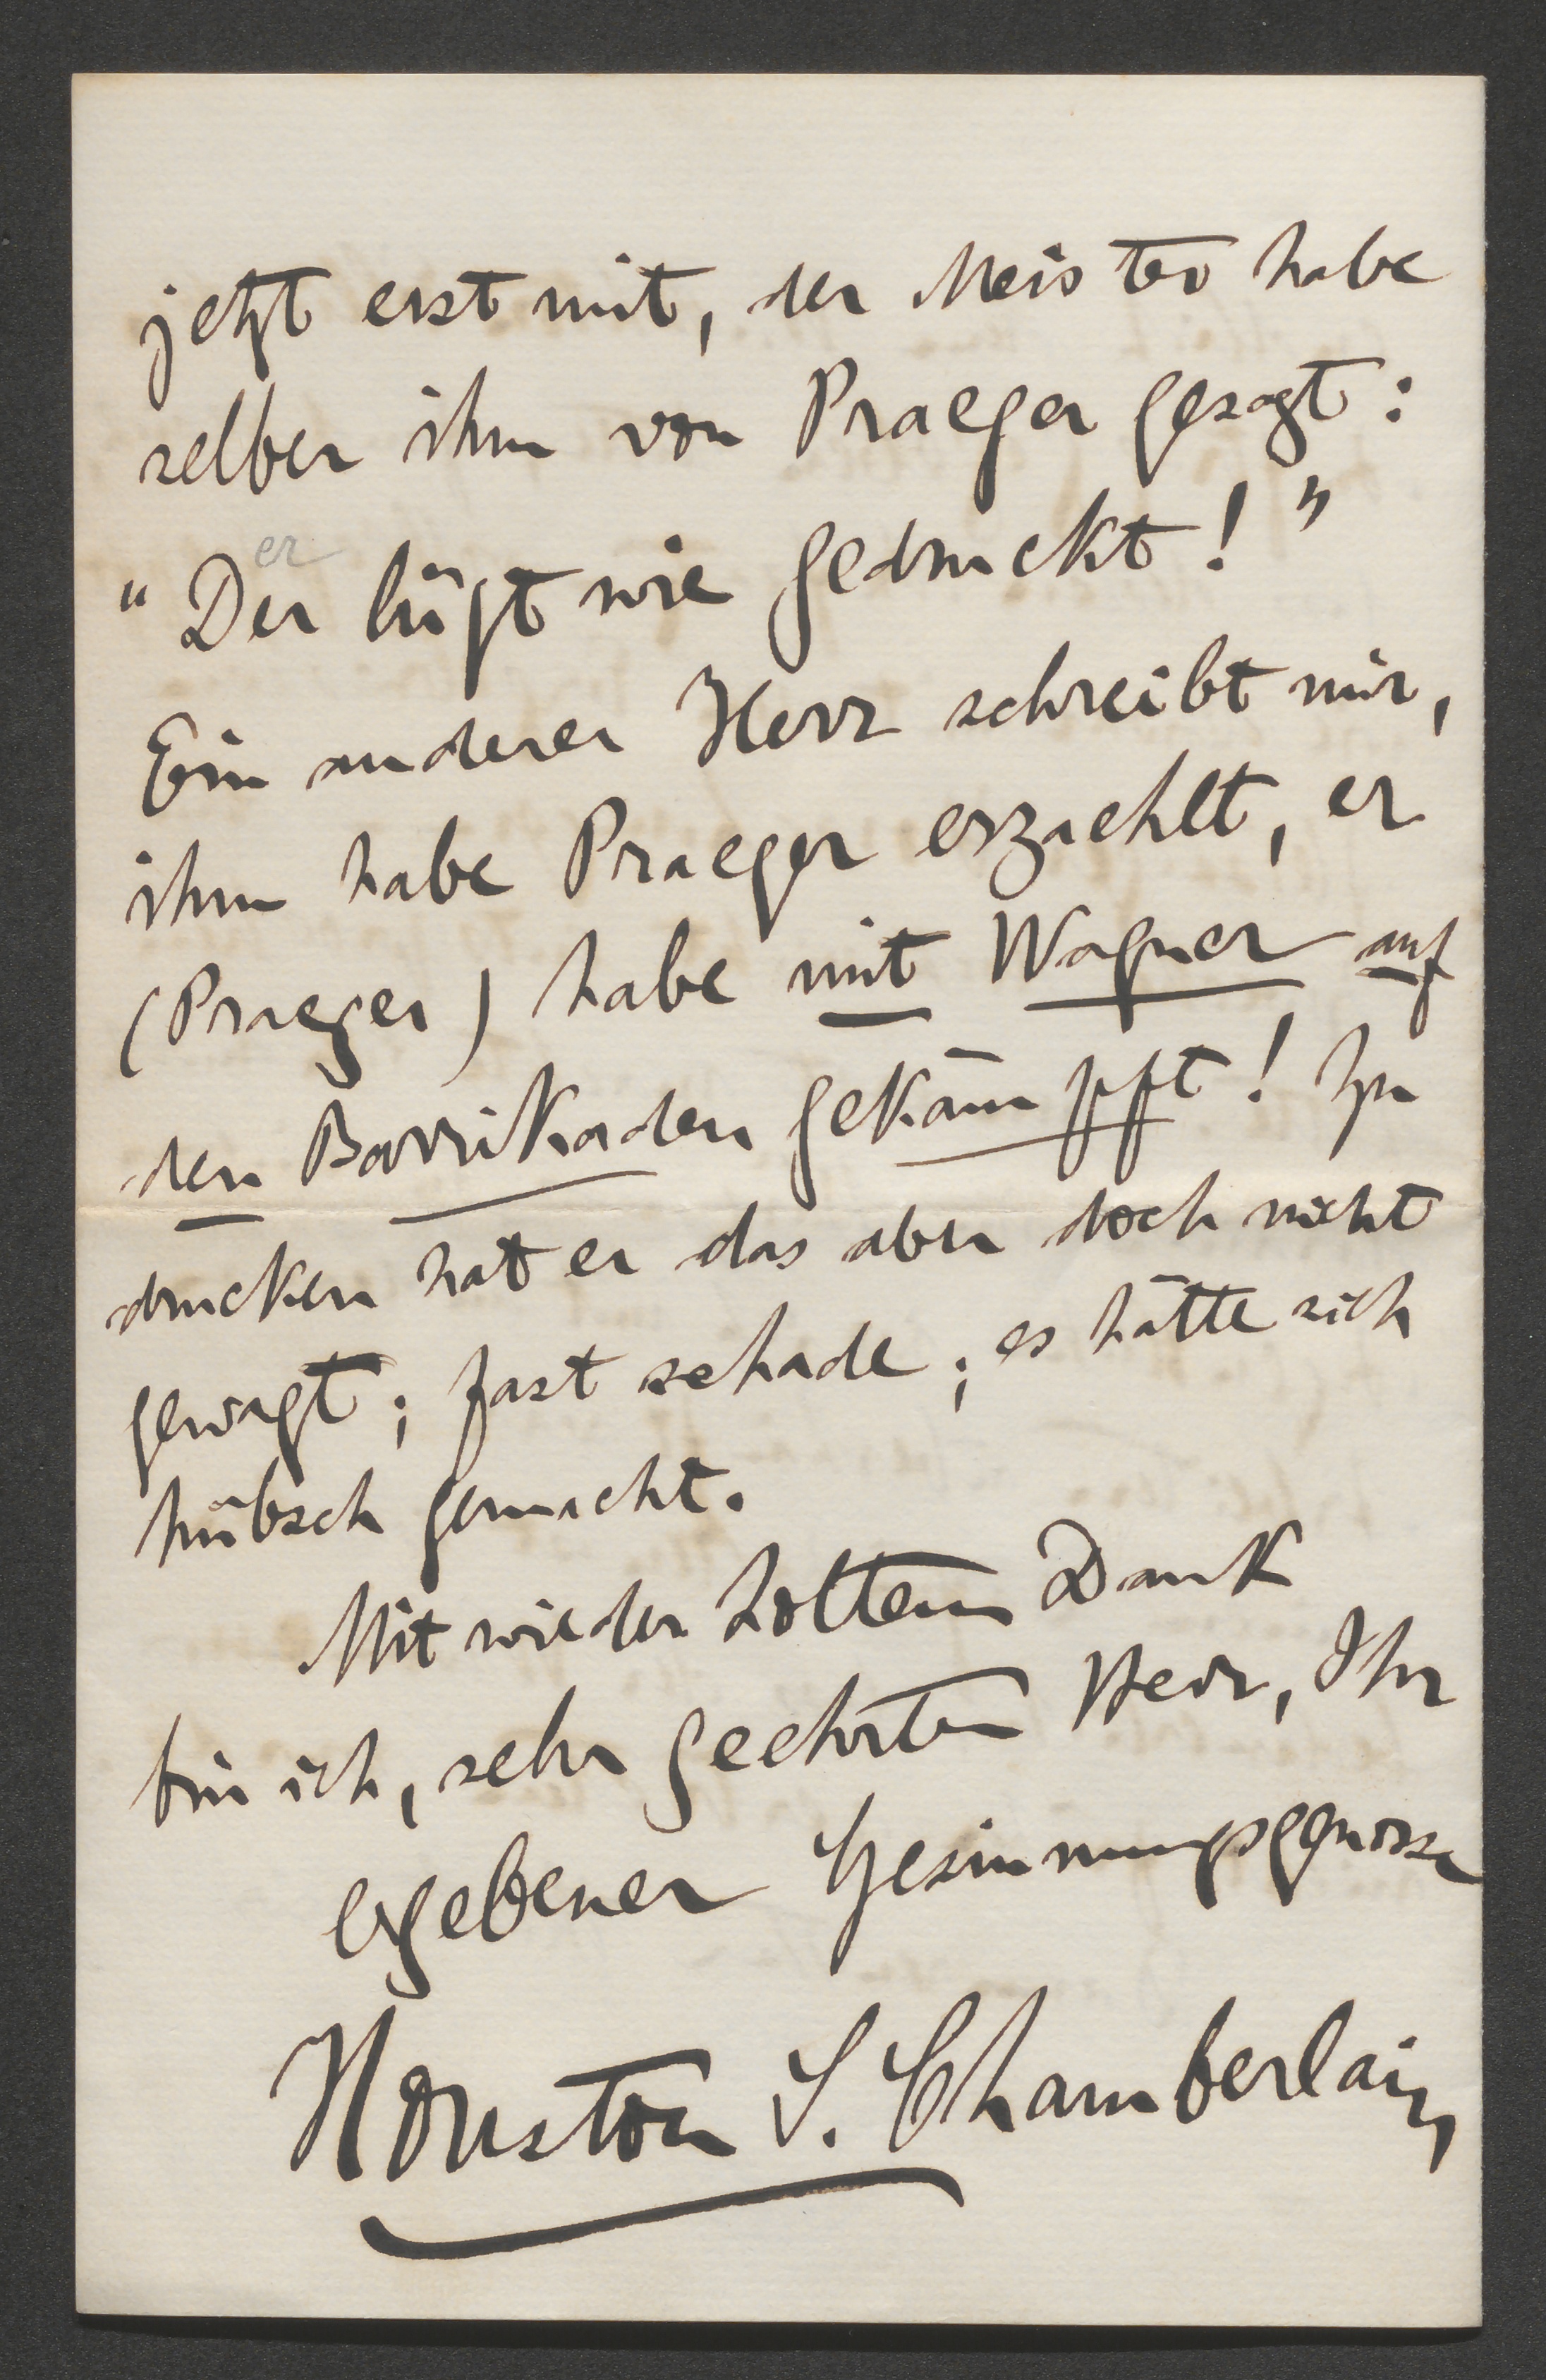 jetzt erst mit, der Meister habe
selber ihm von Praeger gesagt:
er
"Der lügt wie gedruckt!"
Ein anderer Herr schreibt mir,
ihm habe Praeger erzaehlt, er
(Praeger) habe mit Wagner auf
den Barrikaden gekämpft! Zu
drucken hat er das aber doch nicht
gewagt; fast schade; es hätte sich
hübsch gemacht.
Mit wiederholtem Dank
bin ich, sehr geehrter Herr, Ihr
ergebener Gesinnungsgenosse
Houston S. Chamberlain